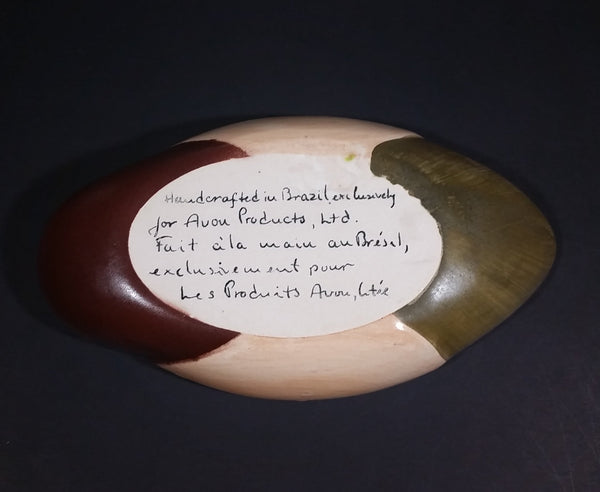 Handcrafted in Brazil, exclusively
for Avou Products, Ltd.
Fait à la main au Brésil,
exclusivement pour
Les Produits Avou, Ltée